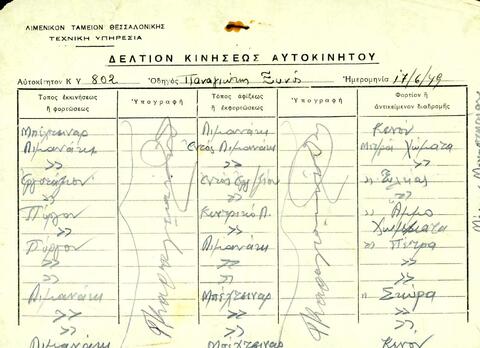 ΛΙΜΕΝΙΚΟΝ ΤΑΜΕΙΟΝ ΘΕΣΣΑΛΟΝΙΚΗΣ
ΤΕΧΝΙΚΗ ΥΠΗΡΕΣΙΑ
ΔΕΛΤΙΟΝ ΚΙΝΗΣΕΩΣ ΑΥΤΟΚΙΝΗΤΟΥ
Αὐτοκίνητον Κ Υ 802 Ὁδηγὸς Παναγιώτης Ἡμερομηνία 17/6/49
Τόπος ἐκκινήσεως ἢ φορτώσεως Ὑπογραφή Τόπος ἀφίξεως ἢ ἐκφορτώσεως Ὑπογραφή Φορτίον ἢ ἀντικείμενον διαδρομῆς
Μπέλτσιναρ Λιμανάκι Κενόν
Λιμανάκι Ἐντὸς Λιμανάκι Χώματα
» » »
Ἐργοτάξιον
» » »
Πύργον Κεντρικό Λ. » Ἄμμο
» » Χώματα
Πύργον Λιμανάκι » Πέτρα
» » »
Λιμανάκι Μπέλτσιναρ » Σκύρα
» » »
Λιμανάκι Μπέλτσιναρ Κενόν